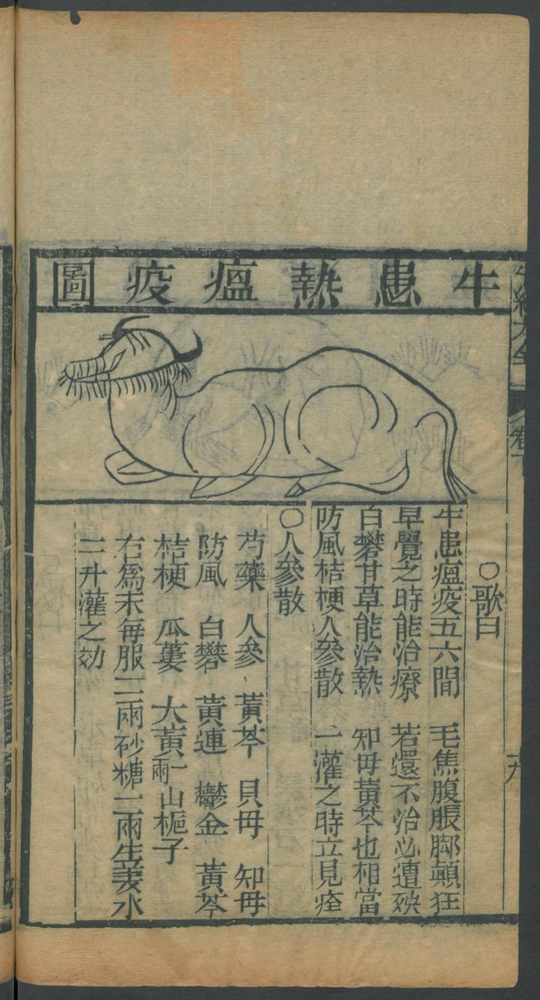 牛患熱瘟疫圖
○歌曰
牛患瘟疫五六間 毛焦腹脹脚顛狂
早覺之時能治療 若還不治必遭殃
白礬甘草能治熱 知毋黃芩也相當
防風桔梗人參散 一灌之時立見痊
○人參散
芍藥 人參 黃芩 貝母 知毋
防風 白礬 黃連 鬱金 黃芩
桔梗 瓜蔞 大黃一兩 山梔子
右爲末每服二兩砂糖二兩生姜水
二升灌之効
卷下
十九